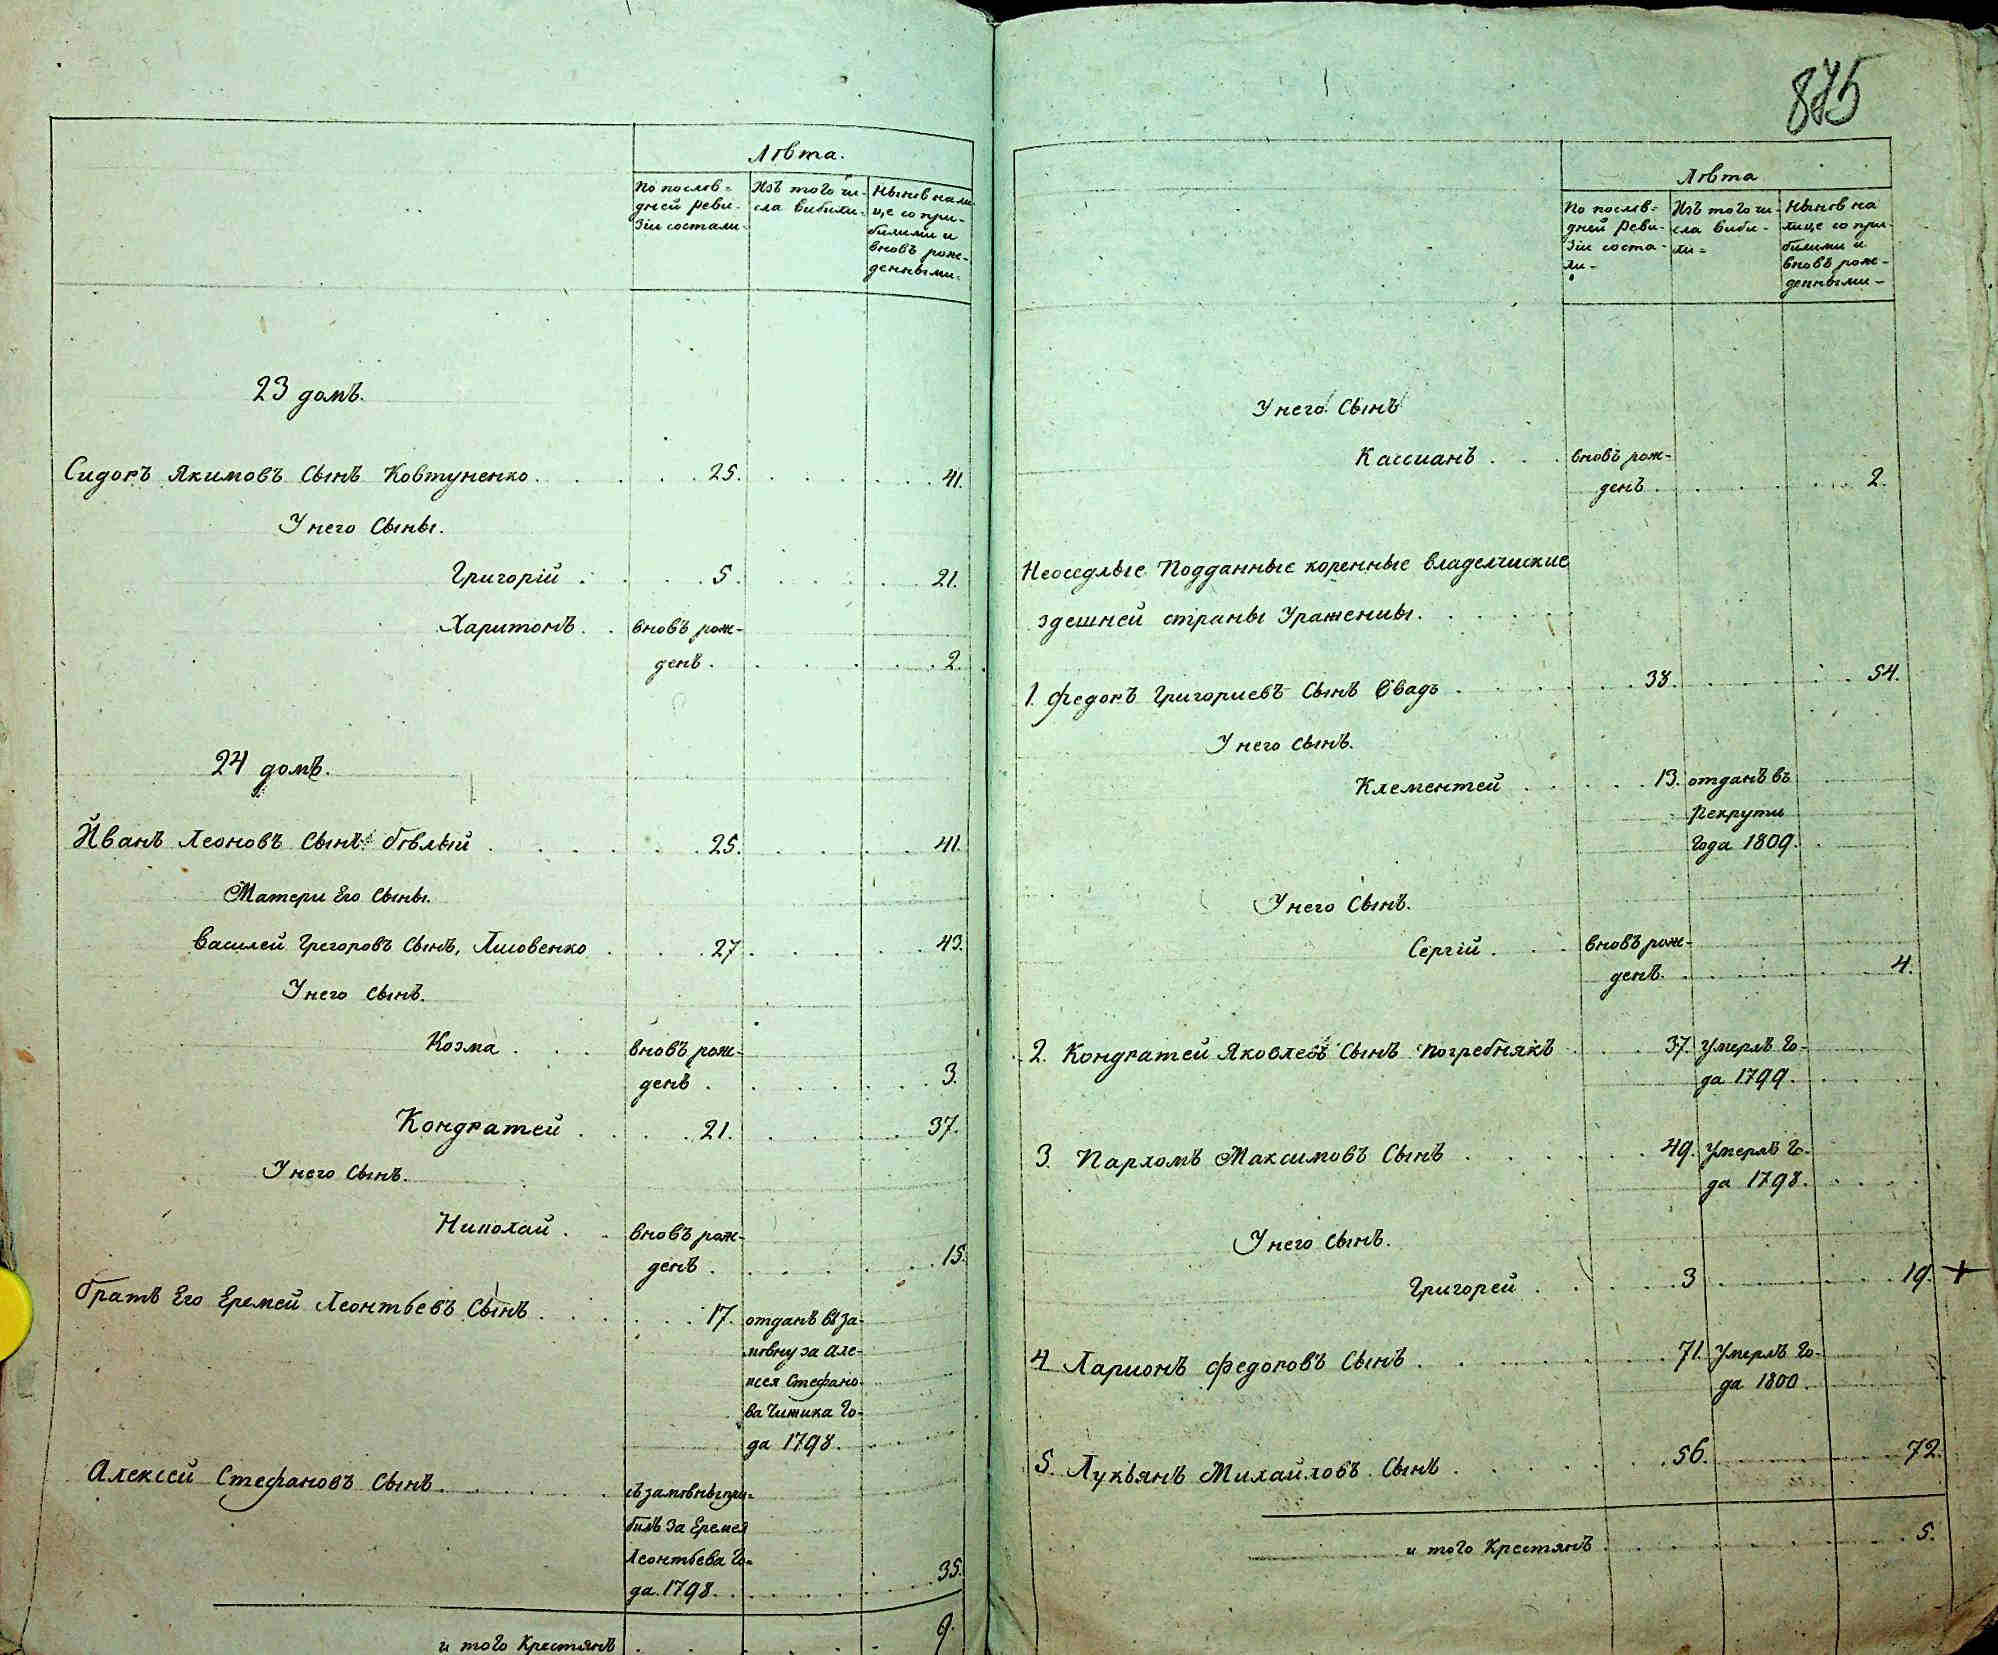 Лѣта.
По послѣ-
дней реви-
зіи состали-
Изъ того чи-
сла вибили-
Нынѣ нали
це со при-
билими и
вновъ рож-
денными-
23 домъ.
Сидоръ Якимовъ Сынъ Ковтуненко 25. 41.
У него Сыны.
Григорій 5. 21.
Харитонъ вновъ рож-
денъ 2.
24 домъ.
Иванъ Леоновъ Сынъ бѣлый 25. 41.
Матери Его Сыны.
Василей Грегоровъ Сынъ, Лисовенко 27 43.
У него Сынъ.
Козма вновъ рож-
денъ 3.
Кондратей 21. 37.
У него Сынъ.
Николай вновъ рож-
денъ 15.
братъ Его Еремей Леонтьевъ Сынъ 17. отданъ въ за-
мѣну за Але-
ксея Стефано-
ва Чижика Го-
да 1798.
Алексей Стефановъ Сынъ съ замѣны при-
билъ за Еремея
Леонтьева Го-
да 1798. 35.
и того Крестянъ 9.
875
Лѣта
По послѣ-
дней Реви-
зіи соста-
ли-
Изъ того чи-
сла виби-
ли-
Нынѣ на
лице со при-
билими и
вновъ рож-
денными-
У него Сынъ
Кассианъ вновъ рож-
денъ 2.
Неоседлые Подданные коренные владелчиские
здешней страны Ураженцы.
1. Федоръ Григориевъ Сынъ Свадъ 38. 54.
У него Сынъ.
Клементей 13. отданъ въ
Рекрути
Года 1809.
У него Сынъ.
Сергій вновъ рож-
денъ 4.
2. Кондратей Яковлевъ Сынъ Погребнякъ 37. Умерлъ Го-
да 1799.
3. Пархомъ Максимовъ Сынъ 49. Умерлъ Го-
да 1798.
У него Сынъ.
Григорей 3 19. +
4 Ларионъ Федоровъ Сынъ 71. Умерлъ Го-
да 1800.
5. Лукьянъ Михайловъ Сынъ 56. 72.
и того Крестянъ 5.